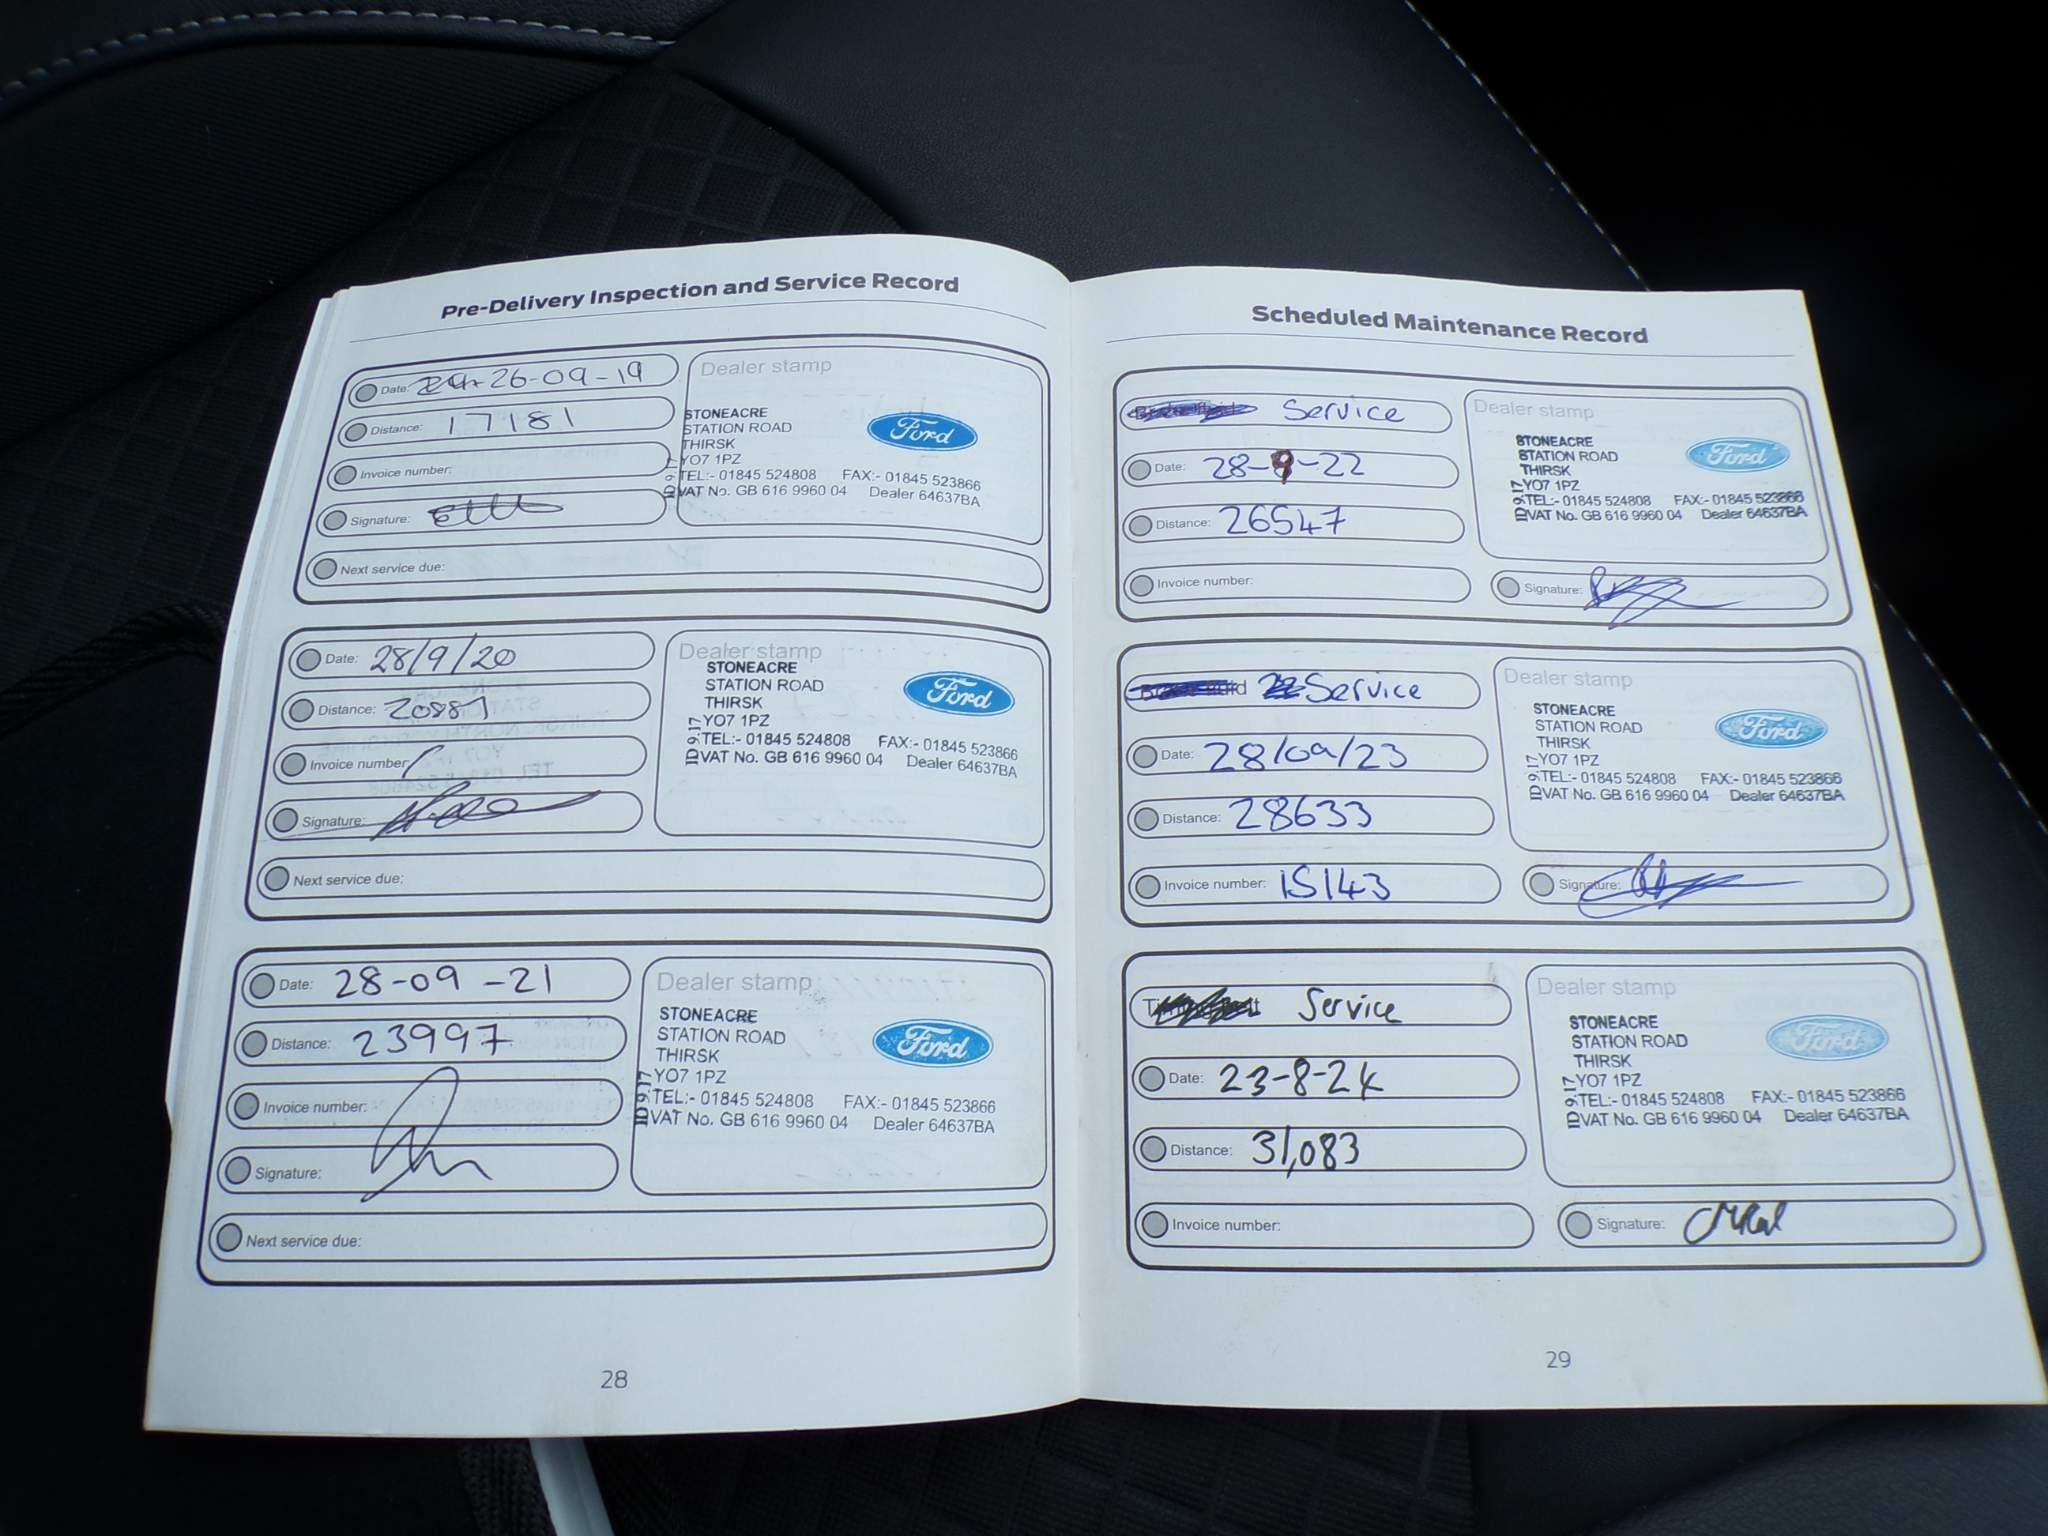 Pre-Delivery Inspection and Service Record
Date: 26-09-19
Distance: 17181
Invoice number:
Signature:
Next service due:
Dealer stamp
STONEACRE
STATION ROAD
THIRSK
YO7 1PZ
TEL:- 01845 524808 FAX:- 01845 523866
VAT No. GB 616 9960 04 Dealer 64637BA
ID 9.17
Ford
Date: 28/9/20
Distance: 20887
Invoice number:
Signature:
Next service due:
Dealer stamp
STONEACRE
STATION ROAD
THIRSK
YO7 1PZ
TEL:- 01845 524808 FAX:- 01845 523866
VAT No. GB 616 9960 04 Dealer 64637BA
ID 9.17
Ford
Date: 28-09-21
Distance: 23997
Invoice number:
Signature:
Next service due:
Dealer stamp
STONEACRE
STATION ROAD
THIRSK
YO7 1PZ
TEL:- 01845 524808 FAX:- 01845 523866
VAT No. GB 616 9960 04 Dealer 64637BA
ID 9.17
Ford
28
Scheduled Maintenance Record
Service
Date: 28-9-22
Distance: 26547
Invoice number:
Dealer stamp
STONEACRE
STATION ROAD
THIRSK
YO7 1PZ
TEL:- 01845 524808 FAX:- 01845 523866
VAT No. GB 616 9960 04 Dealer 64637BA
ID 9.17
Ford
Signature:
Service
Date: 28/09/23
Distance: 28633
Invoice number: 15143
Dealer stamp
STONEACRE
STATION ROAD
THIRSK
YO7 1PZ
TEL:- 01845 524808 FAX:- 01845 523866
VAT No. GB 616 9960 04 Dealer 64637BA
ID 9.17
Ford
Signature:
Service
Date: 23-8-24
Distance: 31,083
Invoice number:
Dealer stamp
STONEACRE
STATION ROAD
THIRSK
YO7 1PZ
TEL:- 01845 524808 FAX:- 01845 523866
VAT No. GB 616 9960 04 Dealer 64637BA
ID 9.17
Ford
Signature:
29